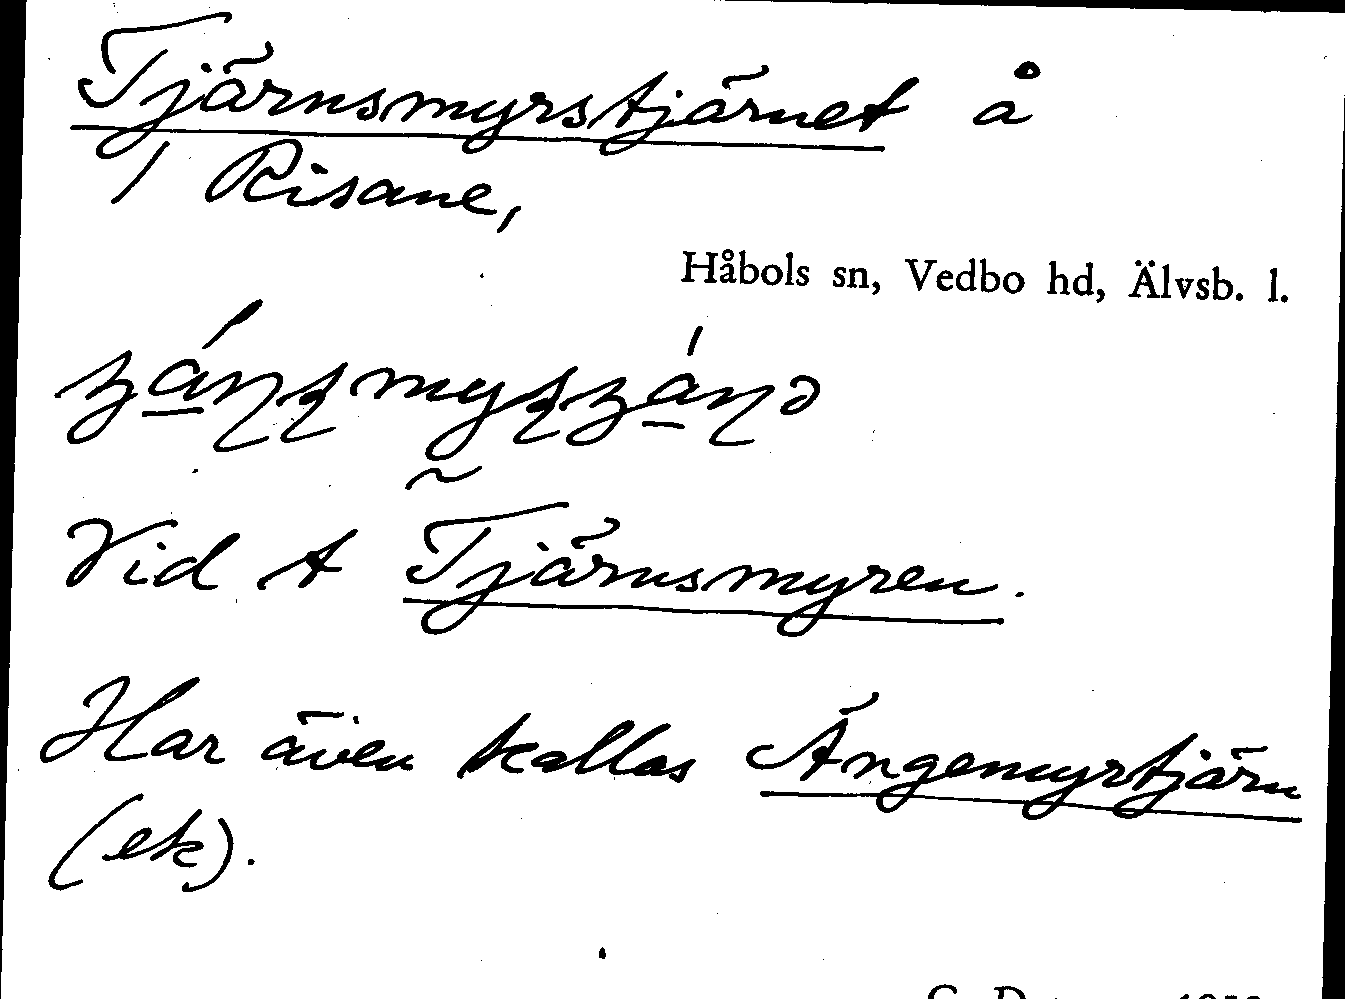 Tjärnsmyrstjärnet å
1 Risane,
Håbols sn, Vedbo hd, Älvsb. l.
Vid t Tjärnsmyren.
Har även kallas Ängemyrtjärn
(ek).